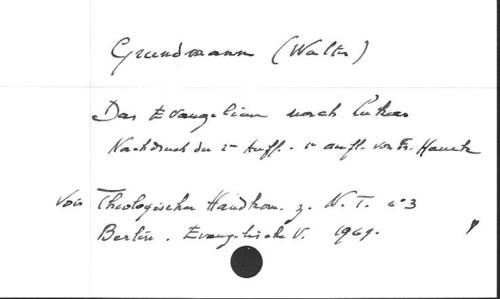 Grundmann (Walter)
Das Evangelium nach Lukas
Nachdruck der 2e Aufl. - 1e aufl. von Fr. Hauck
Voir Theologischer Handkom. z. N. T. n°3
Berlin. Evangelische V. 1969.